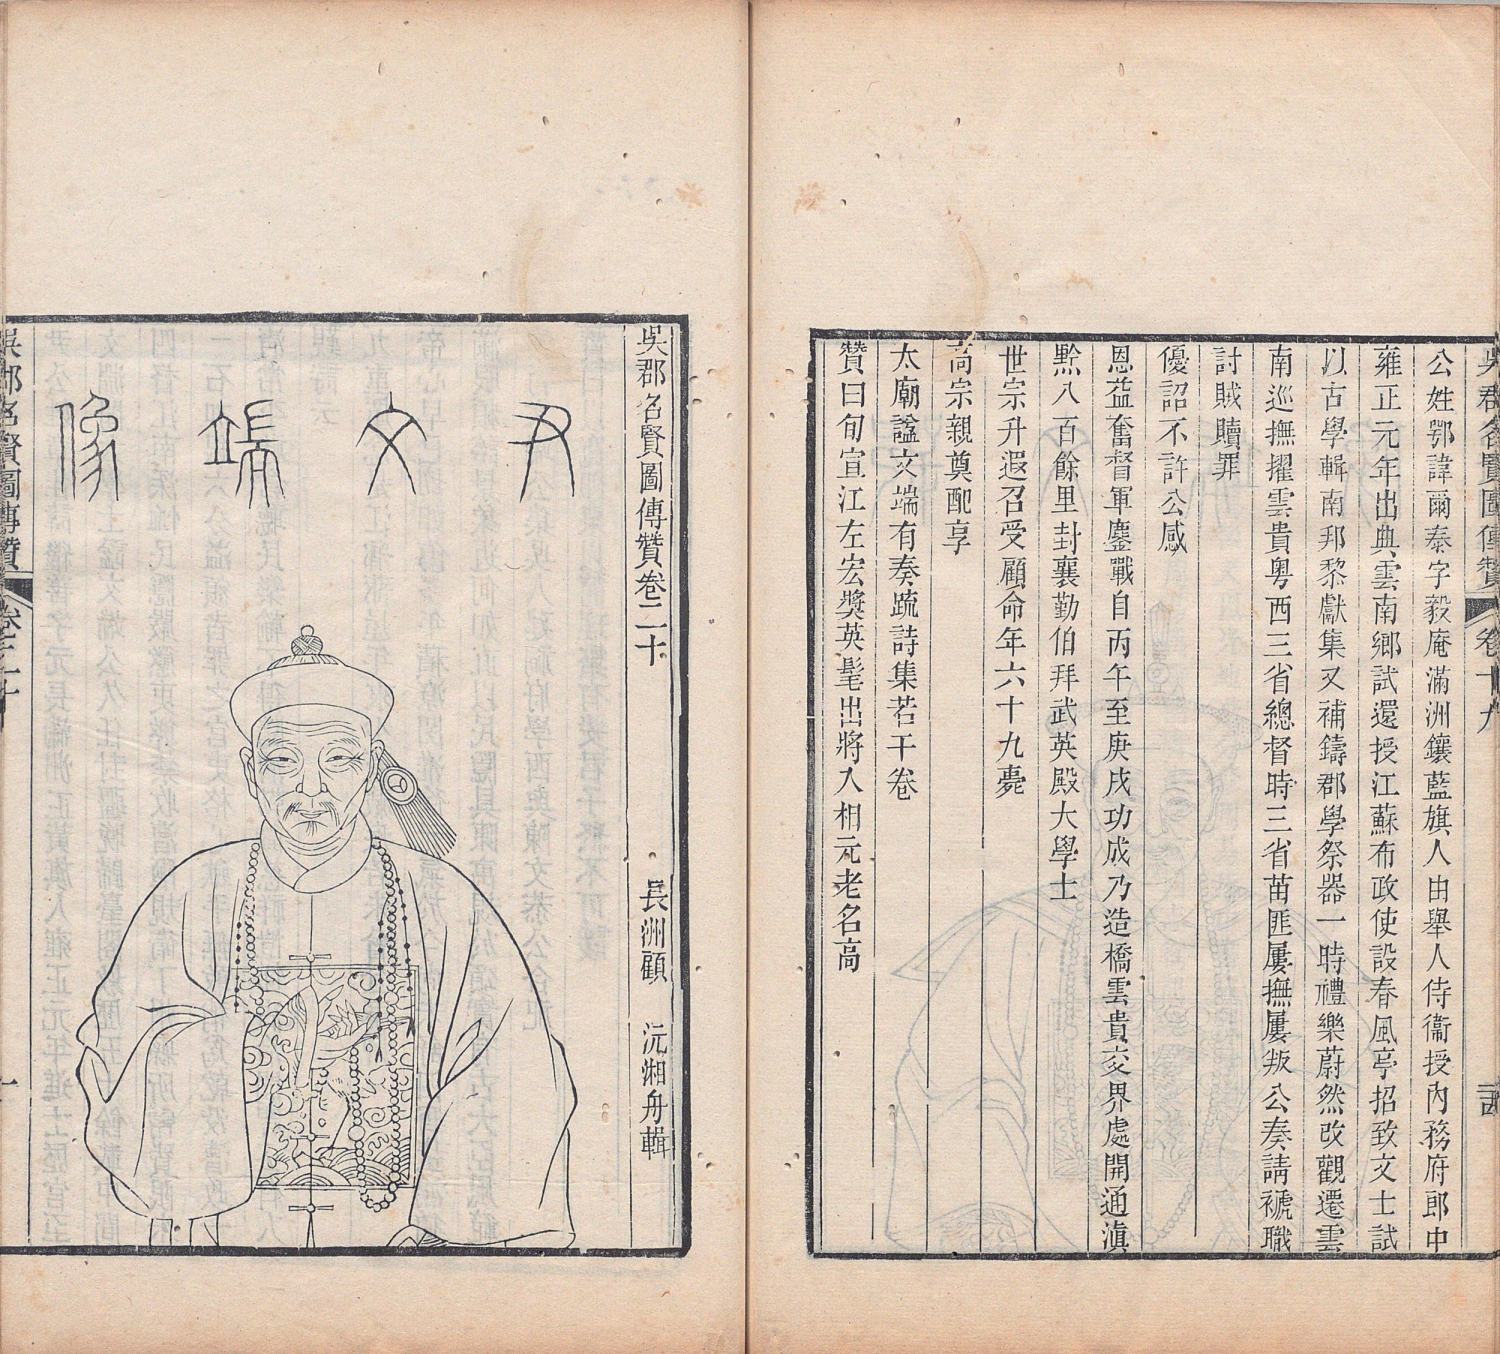 吳郡名賢圖傳贊 卷十九
公姓鄂諱爾泰字毅庵滿洲鑲藍旗人由舉人侍衞授內務府郎中
雍正元年出典雲南鄉試還授江蘇布政使設春風亭招致文士試
以古學輯南邦黎獻集又補鑄郡學祭器一時禮樂蔚然改觀遷雲
南巡撫擢雲貴粤西三省總督時三省苗匪屢撫屢叛公奏請褫職
討賊贖罪
優詔不許公感
恩益奮督軍鏖戰自丙午至庚戌功成乃造橋雲貴交界處開通滇
黔八百餘里封襄勤伯拜武英殿大學士
世宗升遐召受顧命年六十九薨
高宗親奠配享
太廟諡文端有奏疏詩集若干卷
贊曰旬宣江左宏獎英髦出將入相元老名高
吳郡名賢圖傳贊卷二十
長洲顧 沅湘舟輯
尹文端像
吳郡名賢圖傳贊 卷二十 一